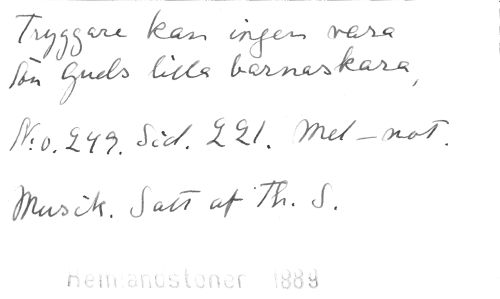 Tryggare kan ingen vara
än Guds lilla barnaskara,
N:o. 249. Sid. 221. Mel-not.
Musik. Satt af Th. S.
Hemlandstoner 1889